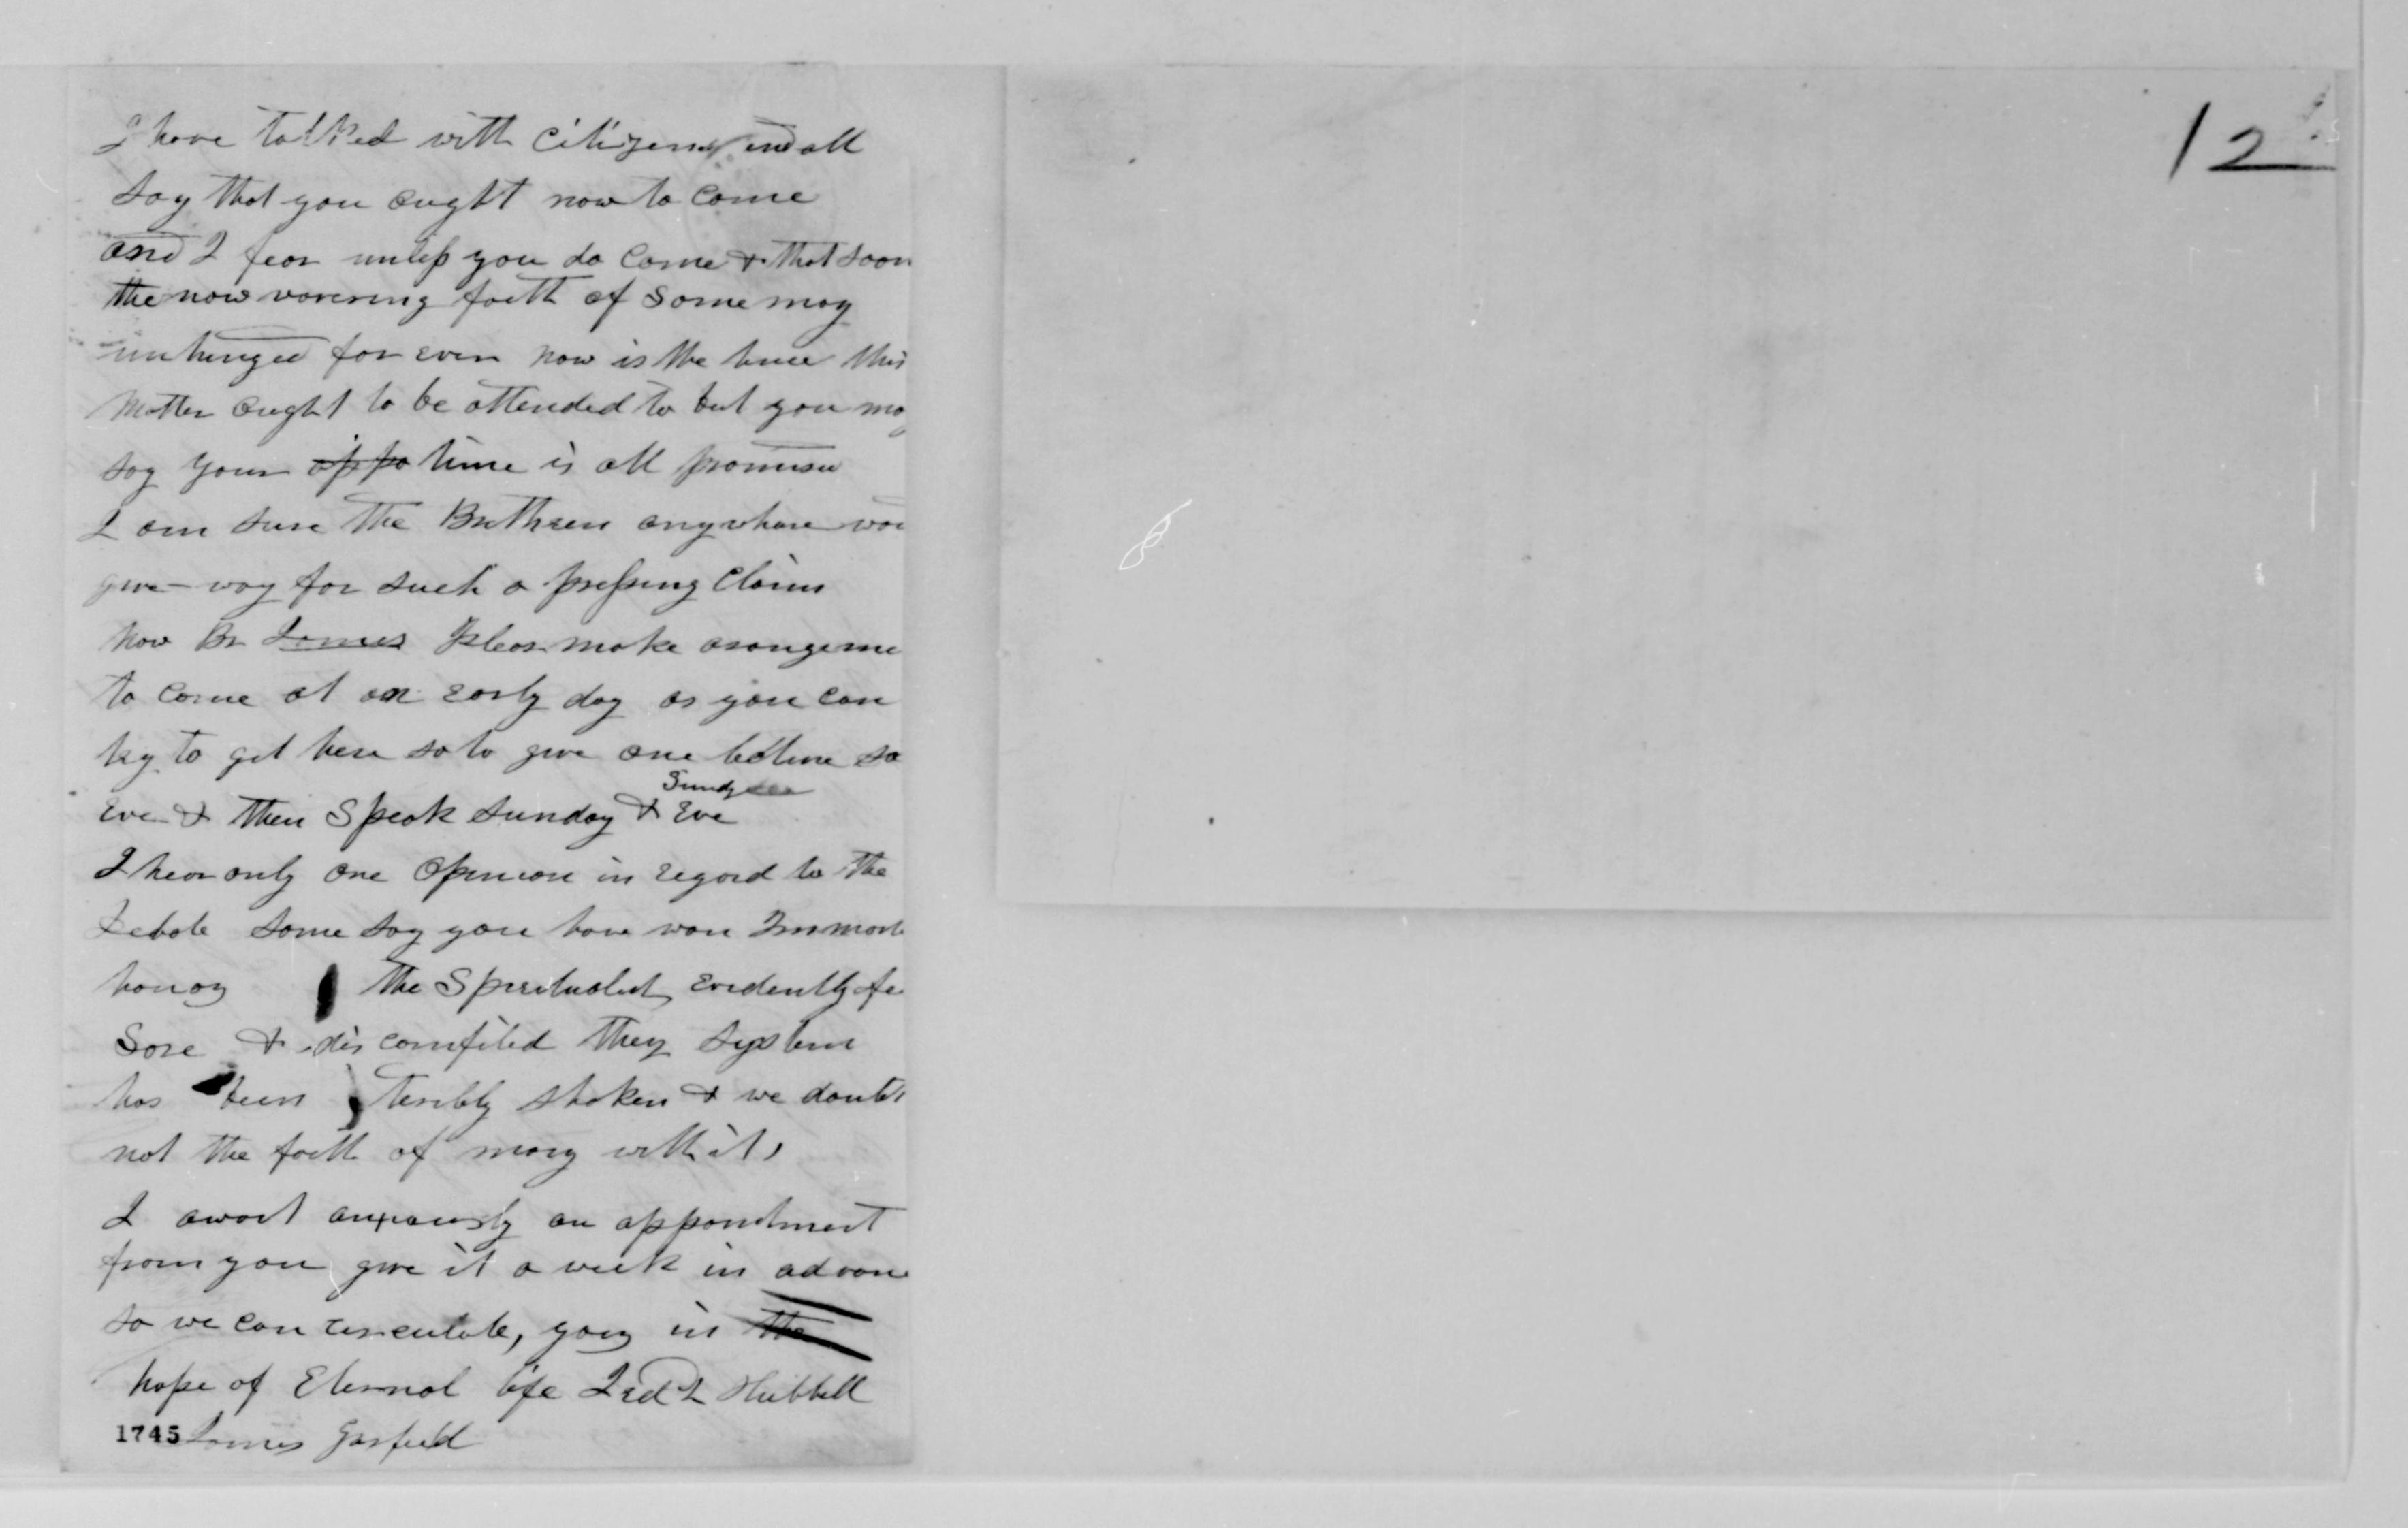 12
I have talked with Citizens and all
say that you ought now to come
and I fear unless you do come & that soon
the now wavering faith of some may
unhinged for ever now is the time this
matter ought to be attended to but you may
say your oppo time is all promised
I am sure the Brethren anywhere wou
give way for such a pressing claim
now Br James Pleas make arangeme
to come at an early day as you can
try to get here so to give one lecture sa
Eve & then Speak Sunday & Sundy Eve
I hear only one opinion in regard to the
Debate some say you have won Immort
honors the Spiritualist evidently fe
sore & discomfited they system
has been teribly shaken & we doubt
not the faith of many with it,
I await anxiously an appointment
from you give it a week in advan
so we can circulate, yours in the
hope of Eternal life Jed L Hubbell
1745 James Garfield